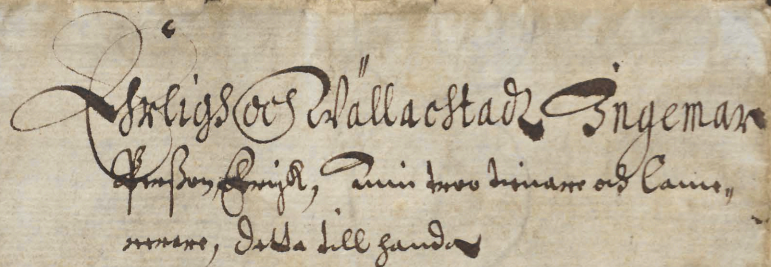 Ehrligh och Wällachtadt Ingemar
Perßon, min troo tienare och Came„
rerare, detta till handa